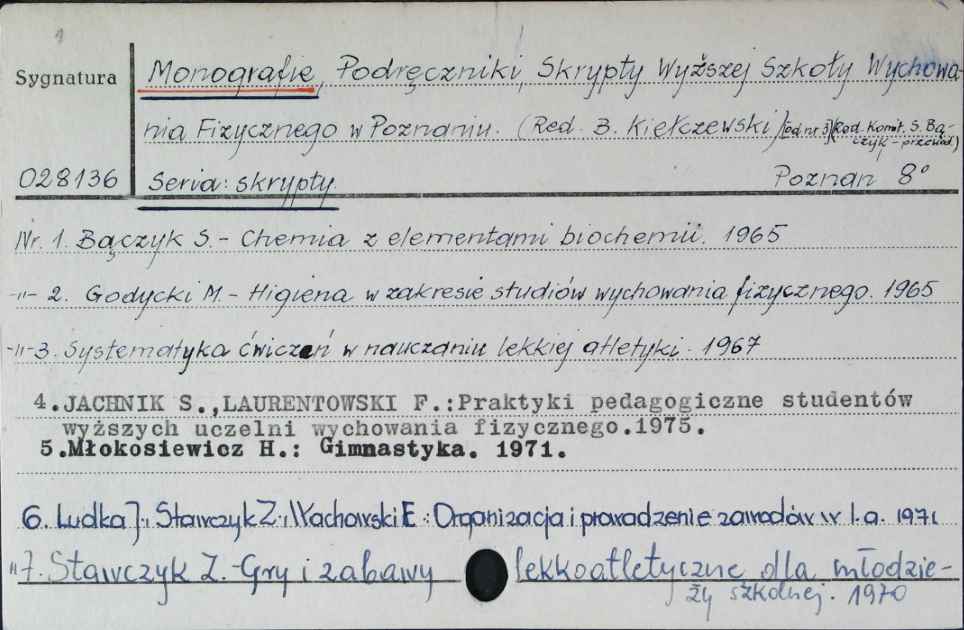 1
Sygnatura
Monografie, Podręczniki, Skrypty Wyższej Szkoły Wychowa-
nia Fizycznego w Poznaniu. (Red. B. Kiełczewski) [od nr 3] (Red. Komit. S. Bą-
czyk - przewod.)
028136 Seria: skrypty. Poznań 8°
Nr. 1. Bączyk S. - Chemia z elementami biochemii. 1965
-"- 2. Godycki M. - Higiena w zakresie studiów wychowania fizycznego. 1965
-"- 3. Systematyka ćwiczeń w nauczaniu lekkiej atletyki. 1967
4.JACHNIK S.,LAURENTOWSKI F.:Praktyki pedagogiczne studentów
wyższych uczelni wychowania fizycznego.1975.
5.Młokosiewicz H.: Gimnastyka. 1971.
6. Ludka J., Stawczyk Z., Wachowski E: Organizacja i prowadzenie zawodów w l.a. 1971
" 7. Stawczyk Z. - Gry i zabawy lekkoatletyczne dla młodzie-
ży szkolnej. 1970